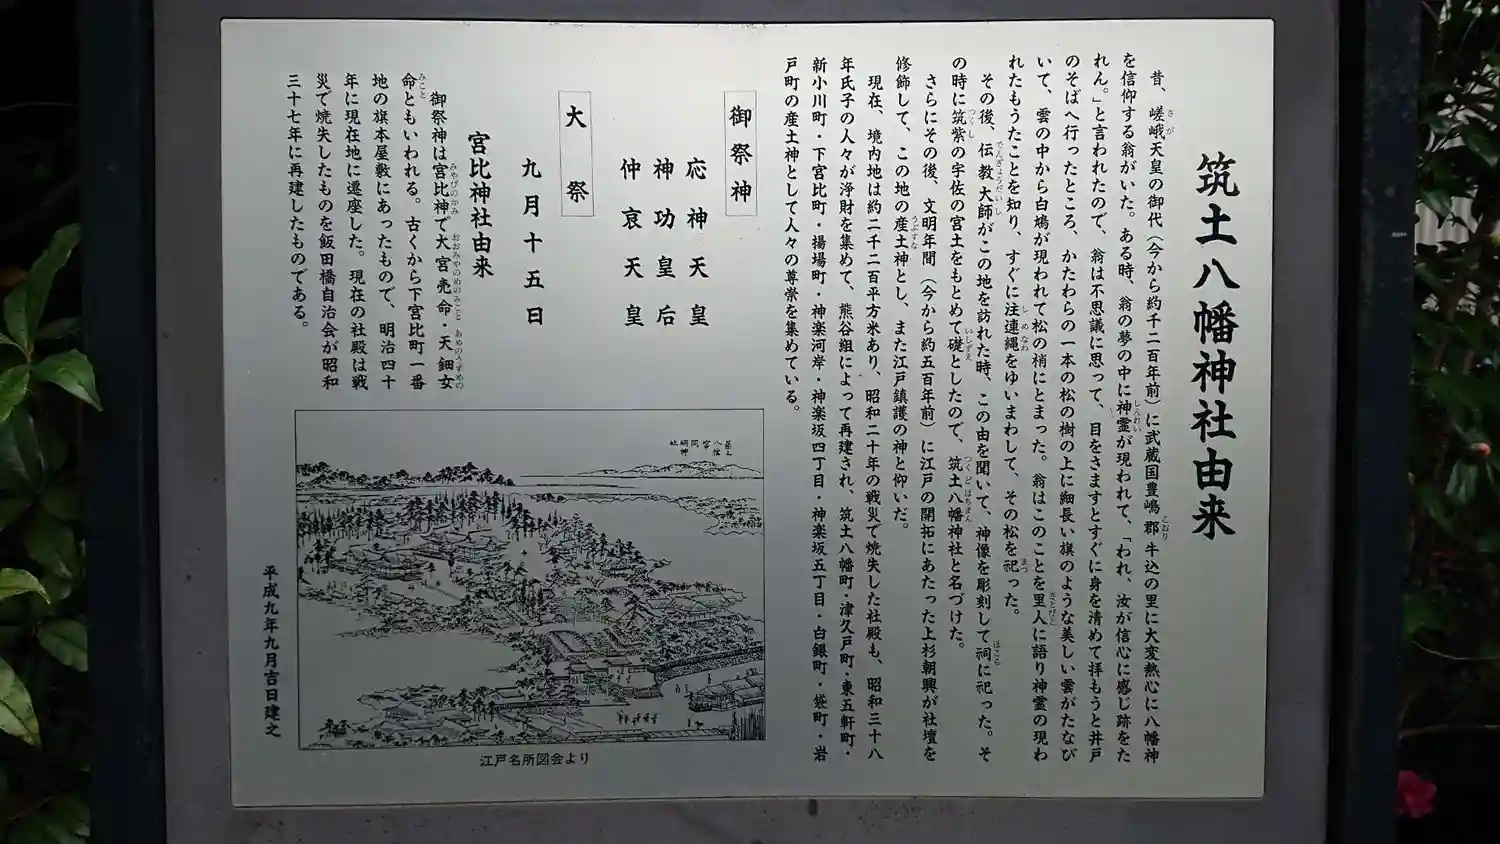 筑土八幡神社由来
昔、嵯峨天皇の御代（今から約千二百年前）に武蔵国豊嶋郡牛込の里に大変熱心に八幡神
を信仰する翁がいた。ある時、翁の夢の中に神霊が現われて、「われ、汝が信心に感じ跡をた
れん。」と言われたので、翁は不思議に思って、目をさますとすぐに身を清めて拝もうと井戸
のそばへ行ったところ、かたわらの一本の松の樹の上に細長い旗のような美しい雲がたなび
いて、雲の中から白鳩が現われて松の梢にとまった。翁はこのことを里人に語り神霊の現わ
れたもうたことを知り、すぐに注連縄をゆいまわして、その松を祀った。
その後、伝教大師がこの地を訪れた時、この由を聞いて、神像を彫刻して祠に祀った。そ
の時に筑紫の宇佐の宮土をもとめて礎としたので、筑土八幡神社と名づけた。
さらにその後、文明年間（今から約五百年前）に江戸の開拓にあたった上杉朝興が社壇を
修飾して、この地の産土神とし、また江戸鎮護の神と仰いだ。
現在、境内地は約二千二百平方米あり、昭和二十年の戦災で焼失した社殿も、昭和三十八
年氏子の人々が浄財を集めて、熊谷組によって再建され、筑土八幡町・津久戸町・東五軒町・
新小川町・下宮比町・揚場町・神楽河岸・神楽坂四丁目・神楽坂五丁目・白銀町・袋町・岩
戸町の産土神として人々の尊崇を集めている。
御祭神
応神天皇
神功皇后
仲哀天皇
大祭
九月十五日
宮比神社由来
御祭神は宮比神で大宮売命・天鈿女
命ともいわれる。古くから下宮比町一番
地の旗本屋敷にあったもので、明治四十
年に現在地に遷座した。現在の社殿は戦
災で焼失したものを飯田橋自治会が昭和
三十七年に再建したものである。
筑土
八幡
宮
同
明神
社
江戸名所図会より
平成九年九月吉日建之